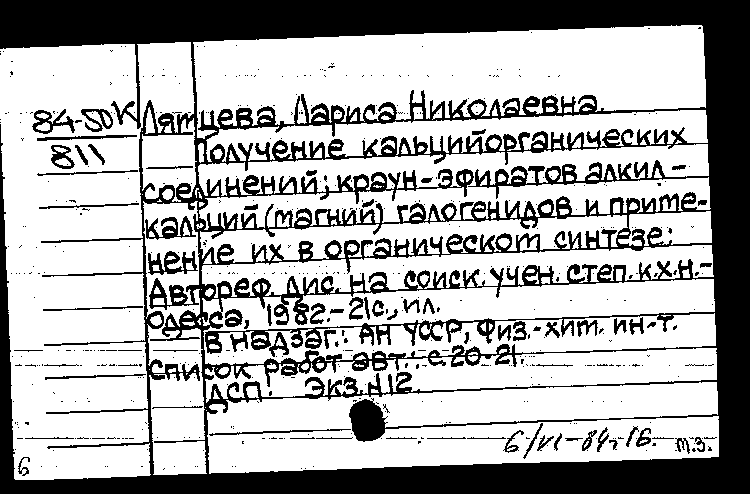 84-50К Лятцева, Лариса Николаевна.
811 Получение кальцийорганических
соединений; краун-эфиратов алкил-
кальций (магний) галогенидов и приме-
нение их в органическом синтезе:
Автореф. дис. на соиск. учен. степ. к.х.н.-
Одесса, 1982.-21с., ил.
В надзаг.: АН УССР, Физ.-хим. ин-т.
Список работ авт.: с.20-21.
ДСП! Экз.N12.
6/VI-84г. 16. т.з.
6